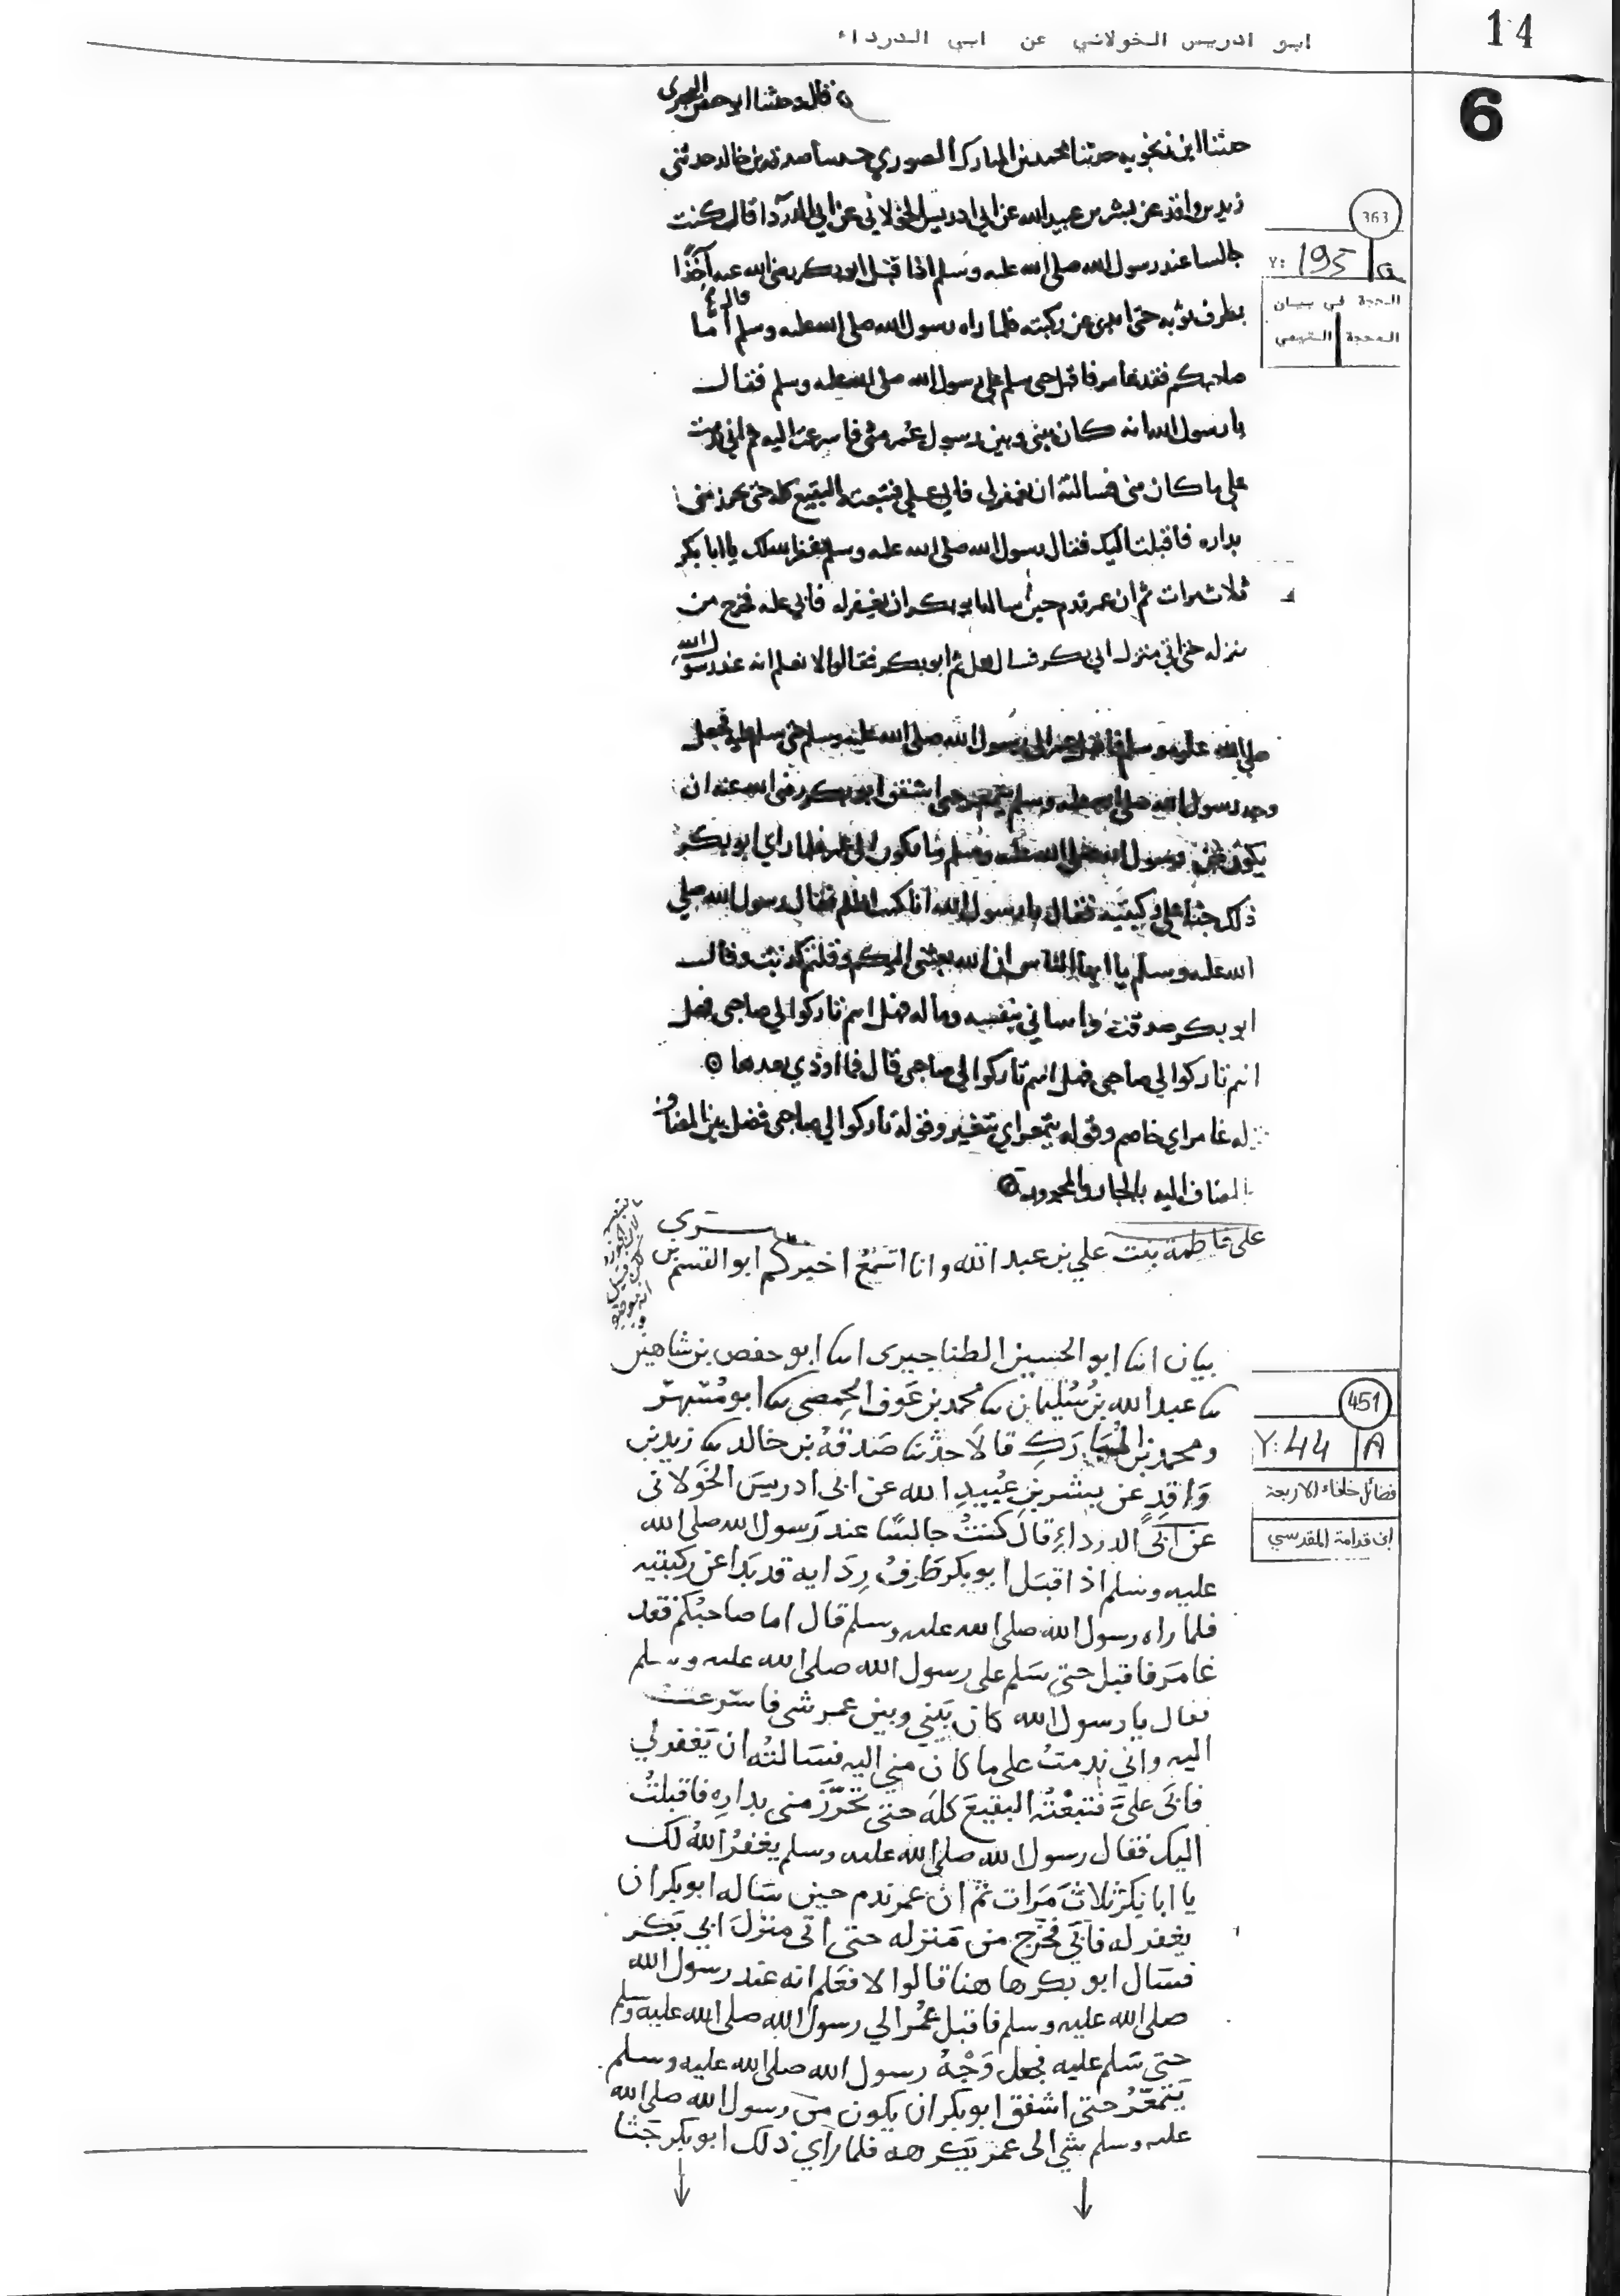 14
ابو ادريس الخولاني عن ابي الدرداء
6
قال وحدثنا ابو حفص
حدثنا ابن زنجويه حدثنا محمد بن المبارك الصوري حدثنا صدقة بن خالد حدثني
زيد بن واقد عن بشر بن عبيد الله عن ابي ادريس الخولاني عن ابي الدردا قال كنت
جالسا عند رسول الله صلى الله عليه وسلم اذا قبل ابو بكر رضي الله عنه آخذا
بطرف ثوبه حتى ابدى عن ركبته فلما راه رسول الله صلى الله عليه وسلم قال أما
صاحبكم فقد غامر فاقبل حتى سلم على رسول الله صلى الله عليه وسلم فقال
يا رسول الله انه كان بيني وبين عمر شي فاسرعت اليه ثم اني ندمت
على ما كان مني فسالته ان يغفر لي فابى علي فتبعته البقيع كله حتى تحرز مني
بداره فاقبلت اليك فقال رسول الله صلى الله عليه وسلم يغفر الله لك يا ابا بكر
ثلاث مرات ثم ان عمر ندم حين ساله ابو بكر ان يغفر له فابى عليه فخرج من
منزله حتى اتى منزل ابي بكر فسال هل ثم ابو بكر فقالوا لا نعلم انه عند رسول الله
صلى الله عليه وسلم فاقبل عمر الى رسول الله صلى الله عليه وسلم حتى سلم عليه فجعل
وجه رسول الله صلى الله عليه وسلم يتمعر حتى اشفق ابو بكر رضي الله عنه ان
يكون من رسول الله صلى الله عليه وسلم الى عمر فلما راي ابو بكر
ذلك جثا على ركبتيه فقال يا رسول الله انا كنت اظلم فقال رسول الله صلى
الله عليه وسلم يا ايها الناس ان الله بعثني اليكم وقلتم كذبت وقال
ابو بكر صدقت وواساني بنفسه وماله فهل انتم تاركوا لي صاحبي فهل
انتم تاركوا لي صاحبي فهل انتم تاركوا لي صاحبي قال فما اوذي بعدها
له غامر اي خاصم وقوله يتمعر اي يتغير وقوله تاركوا لي صاحبي فصل بين المضاف
والمضاف اليه بالجار والمجرور
363
Y: 195 a
الحجة في بيان
المحجة التيمي
على فاطمة بنت علي بن عبد الله وانا اسمع اخبركم ابو القسم بن
بيان انا ابو الحسين الطناجيري انا ابو حفص بن شاهين
نا عبد الله بن سُليمان نا محمد بن عَوف الحِمصي نا ابو مُسْهِر
ومحمد بن المُبَارَكِ قالَا حدثنا صَدقةُ بن خالد نا زيد بن
وَاقدٍ عن بشر بنِ عُبيدِ الله عن ابى ادريسَ الخَولانى
عن ابى الدرداءِ قال كنتُ جالسًا عند رسول الله صلى الله
عليه وسلم اذ اقبَل ابو بكر طَرفُ رِدَايه قد بَدا عن ركبتيه
فلما راه رسول الله صلى الله عليه وسلم قال اما صاحبُكم فقد
غامَر فاقبل حتى سَلم على رسول الله صلى الله عليه وسلم
فقال يا رسول الله كان بَيني وبين عمر شى فاسْرعتُ
اليه واني ندمتُ على ما كان مني اليه فسَالتُه ان يَغفر لي
فابَى عليَّ فتبعْتُه البقيعَ كلَه حتى تحَرَّزَ منى بدارِه فاقبلتُ
اليك فقال رسول الله صلى الله عليه وسلم يغفرُ اللهُ لك
يا ابا بَكرٍ ثلاثَ مَرات ثم ان عمر ندم حين سَاله ابو بكر ان
يغفر له فابَى فخَرج من مَنزله حتى اتى منزلَ ابي بَكر
فسَال ابو بكر هاهنا قالوا لا فعَلم انه عند رسول الله
صلى الله عليه وسلم فاقبل عُمَر الي رسول الله صلى الله عليه وسلم
حتى سَلم عليه فجعل وَجْهُ رسول الله صلى الله عليه وسلم
يَتمعّرُ حتى اشفق ابو بكر ان يكون من رسول الله صلى الله
عليه وسلم شي الى عمر يَكرهه فلما رَاي ذلك ابو بكر جَثا
451
Y: 44 A
فضائل خلفاء الاربعة
ابن قدامة المقدسي